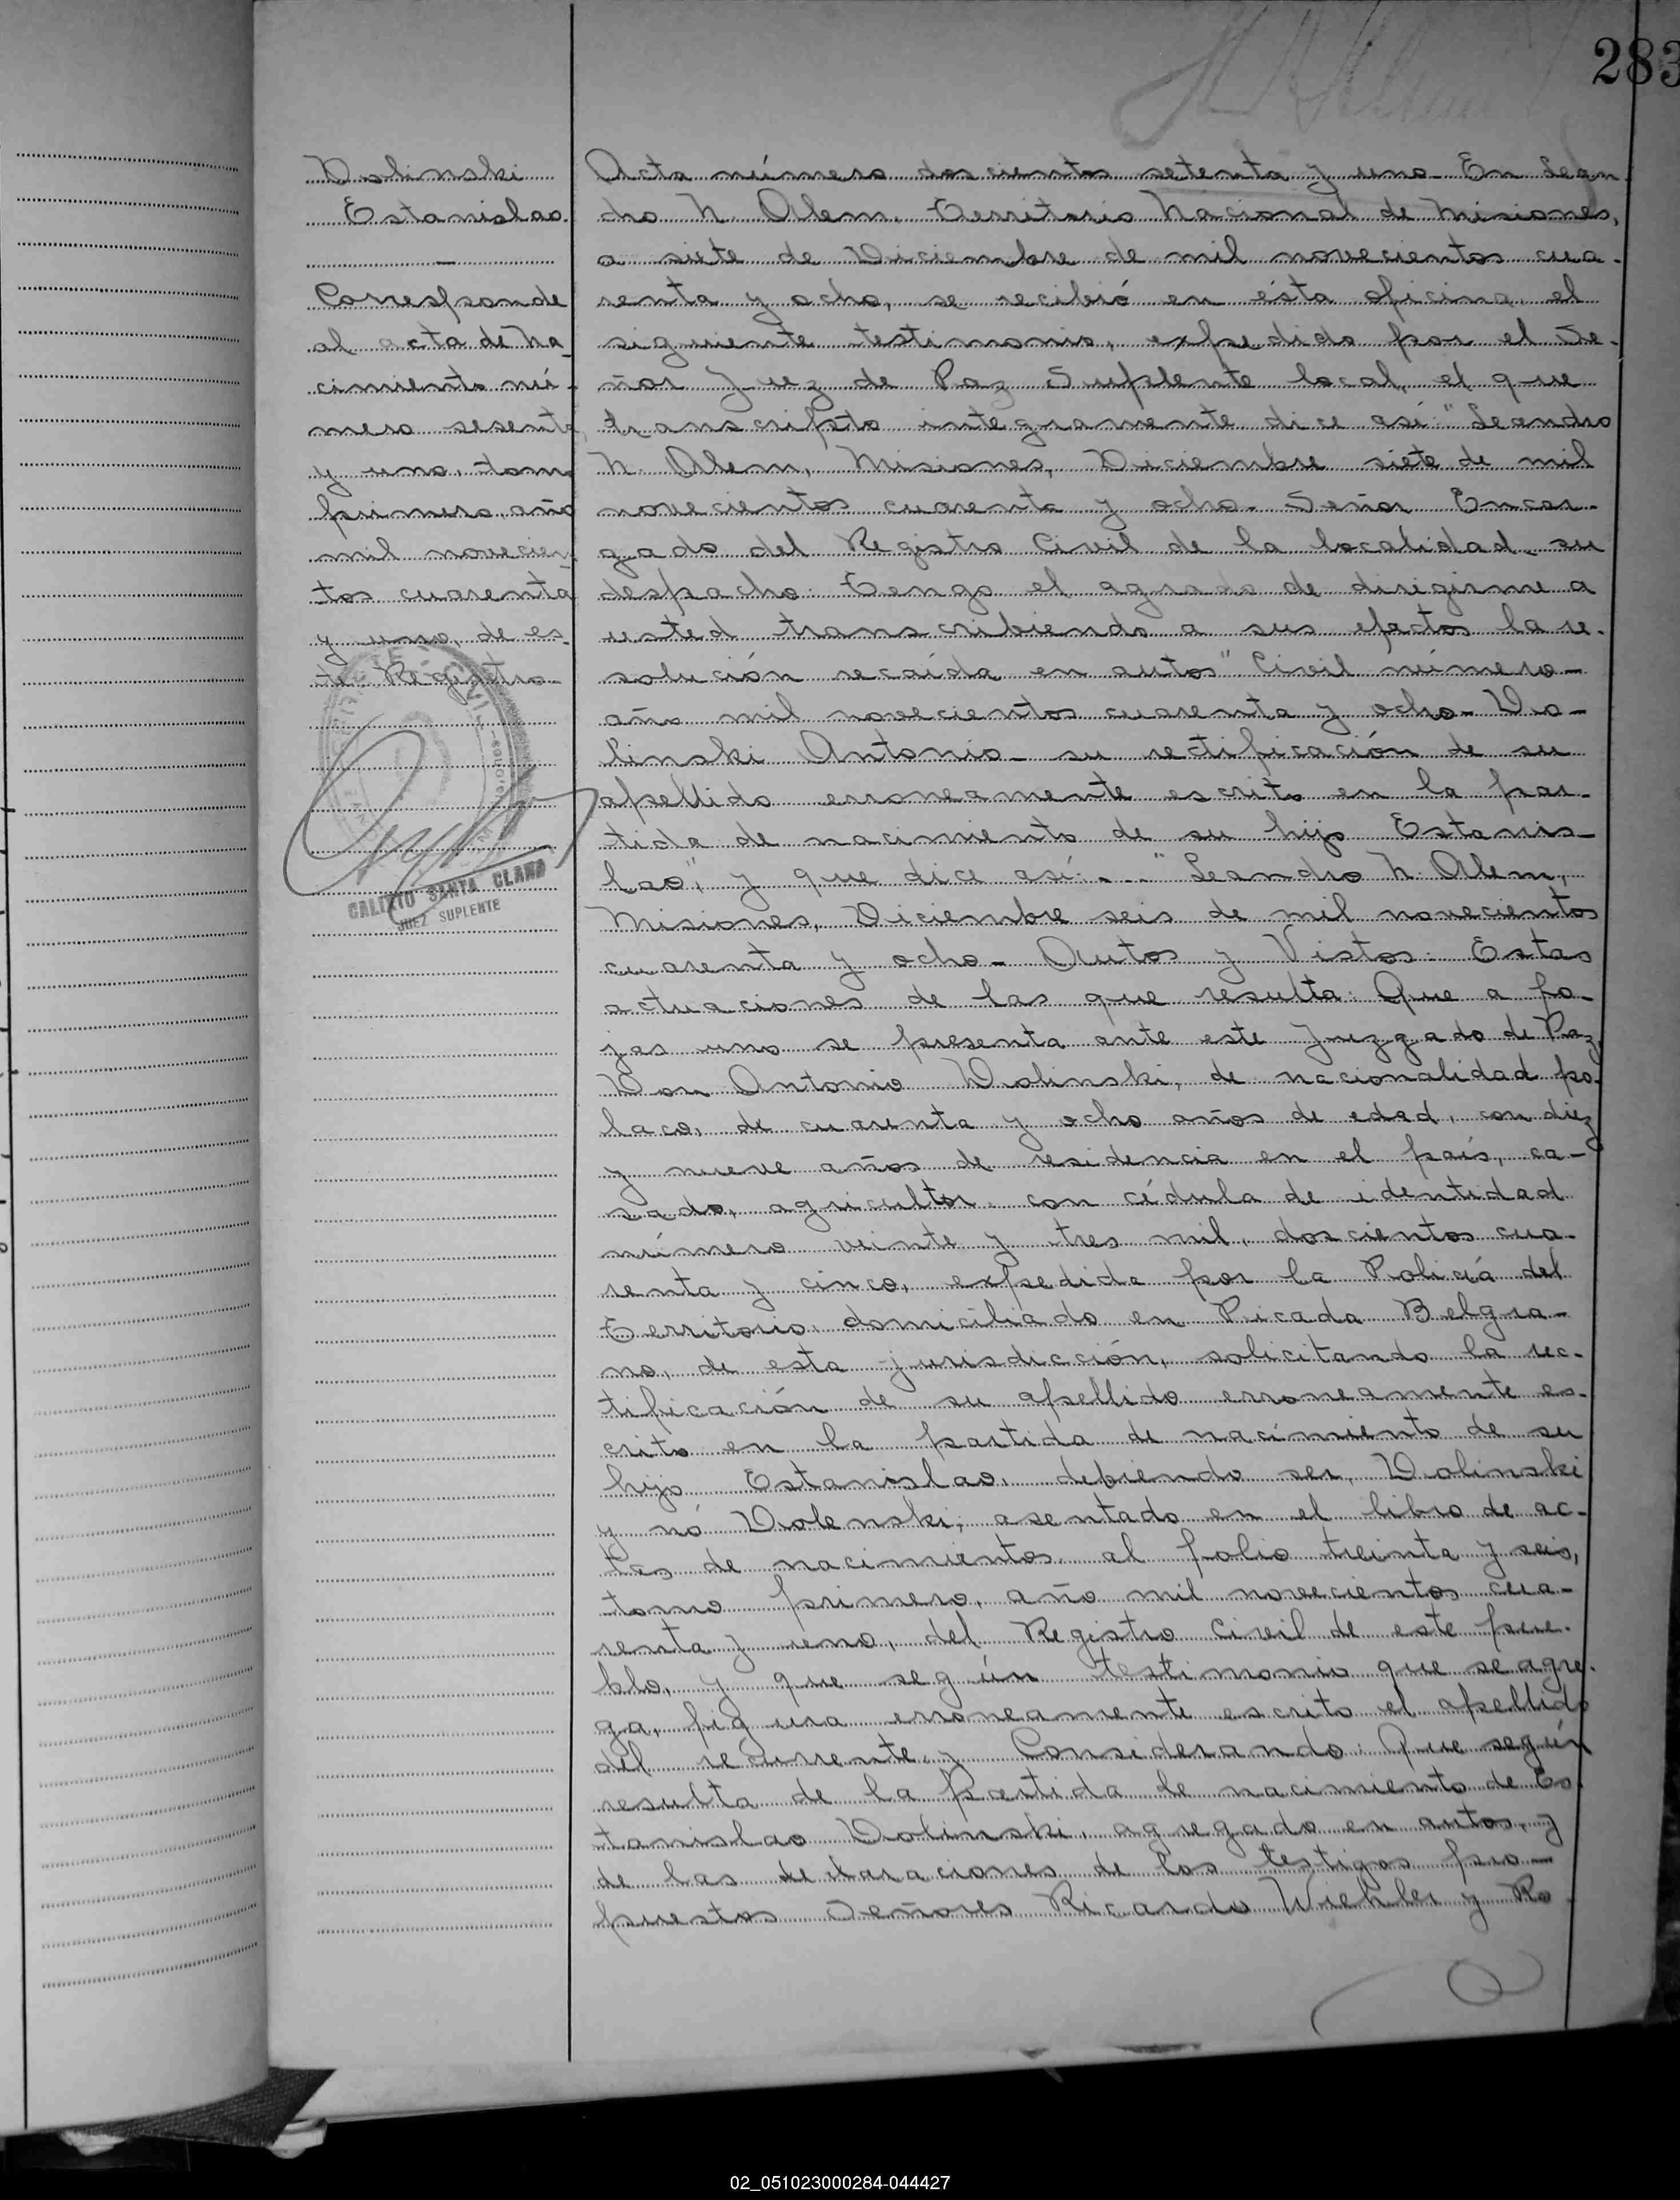 283
Wolinski
Estanislao.
—
Corresponde
al acta de na_
cimiento nú-
mero sesenta
y uno, tomo
primero, año
mil novecien_
tos cuarenta
y uno, de es-
te Registro.
CALIXTO SANTA CLARA
JUEZ SUPLENTE
Acta número doscientos setenta y uno. En Lean
dro N. Alem, Territorio Nacional de Misiones,
a siete de Diciembre de mil novecientos cua-
renta y ocho, se recibió en ésta oficina, el
siguiente testimonio, expedido por el Se-
ñor Juez de Paz Suplente local, el que
transcripto integramente dice así: "Leandro
N. Alem, Misiones, Diciembre siete de mil
novecientos cuarenta y ocho. Señor Encar-
gado del Registro Civil de la localidad. su
despacho: Tengo el agrado de dirigirme a
usted transcribiendo a sus efectos la re-
solución recaída en autos "Civil número—
año mil novecientos cuarenta y ocho- Wo-
linski Antonio- su rectificación de su
apellido erroneamente escrito en la par-
tida de nacimiento de su hijo Estanis-
lao", y que dice así:..." Leandro N. Alem,
Misiones, Diciembre seis de mil novecientos
cuarenta y ocho- Autos y Vistos: Estas
actuaciones de las que resulta: Que a fo-
jas uno se presenta ante este Juzgado de Paz,
Don Antonio Wolinski, de nacionalidad po-
laco, de cuarenta y ocho años de edad, con diez
y nueve años de residencia en el país, ca-
sado, agricultor, con cédula de identidad
número veinte y tres mil, doscientos cua-
renta y cinco, expedida por la Policiá del
Territorio, domiciliado en Picada Belgra-
no, de esta jurisdicción, solicitando la rec-
tificación de su apellido erroneamente es-
crito en la partida de nacimiento de su
hijo Estanislao, debiendo ser, Wolinski
y nó Wolenski, asentado en el libro de ac-
tas de nacimientos al folio treinta y seis,
tomo primero, año mil novecientos cua-
renta y uno, del Registro Civil de este pue-
blo, y que según testimonio que se agre-
ga, figura erroneamente escrito el apellido
del recurrente, y Considerando: Que según
resulta de la partida de nacimiento de Es
tanislao Wolinski, agregado en autos, y
de las declaraciones de los testigos pro-
puestos Señores Ricardo Wiehler y Ro
02_051023000284-044427